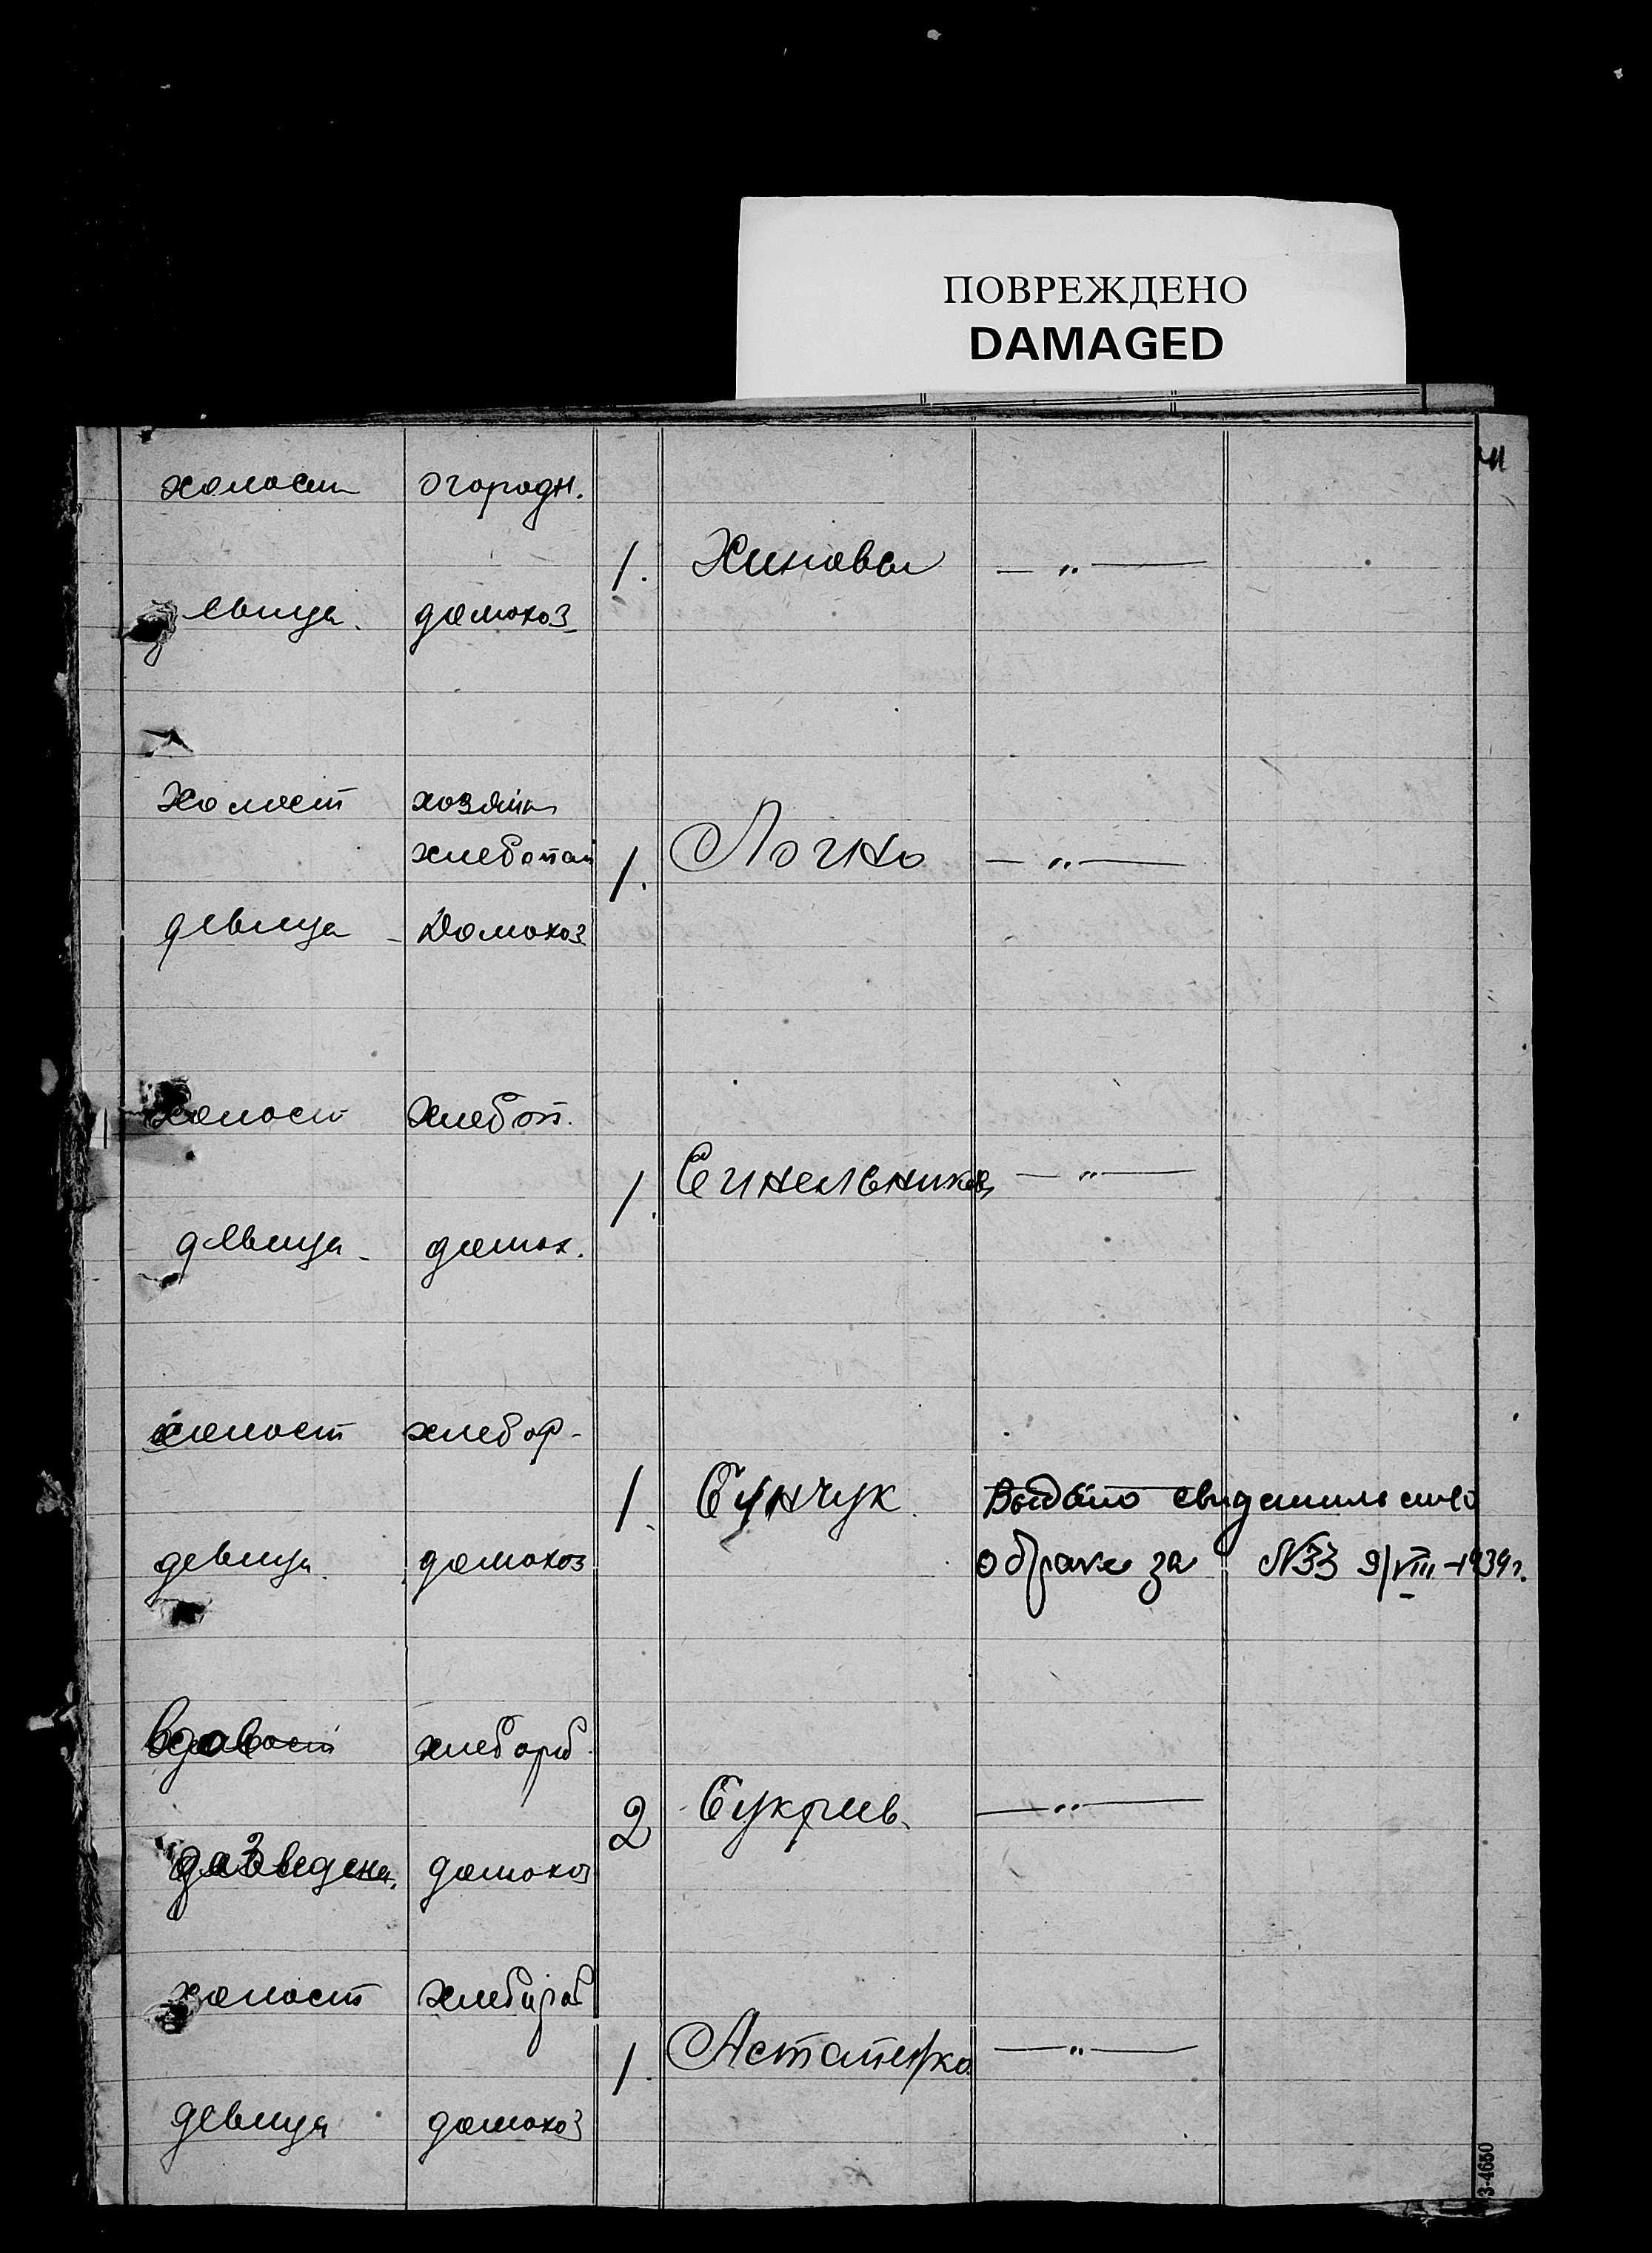 ПОВРЕЖДЕНО
DAMAGED
холост огородн.
1. Хиновы — „ —
девица. домохоз
холост хозяин
хлебопаш
1. Логно — „ —
девица - Домохоз
холост хлебоп.
1. Синельников — „ —
девица - домох.
холост хлебор-
1. Сунчук. Выдано свидетельство
девица. домохоз о браке за №33 9/VIII-1939г.
хлебораб.
2 — „ —
разведена. домохоз
холост хлебораб
1. Астапенко. — „ —
девица домохоз
3-4650